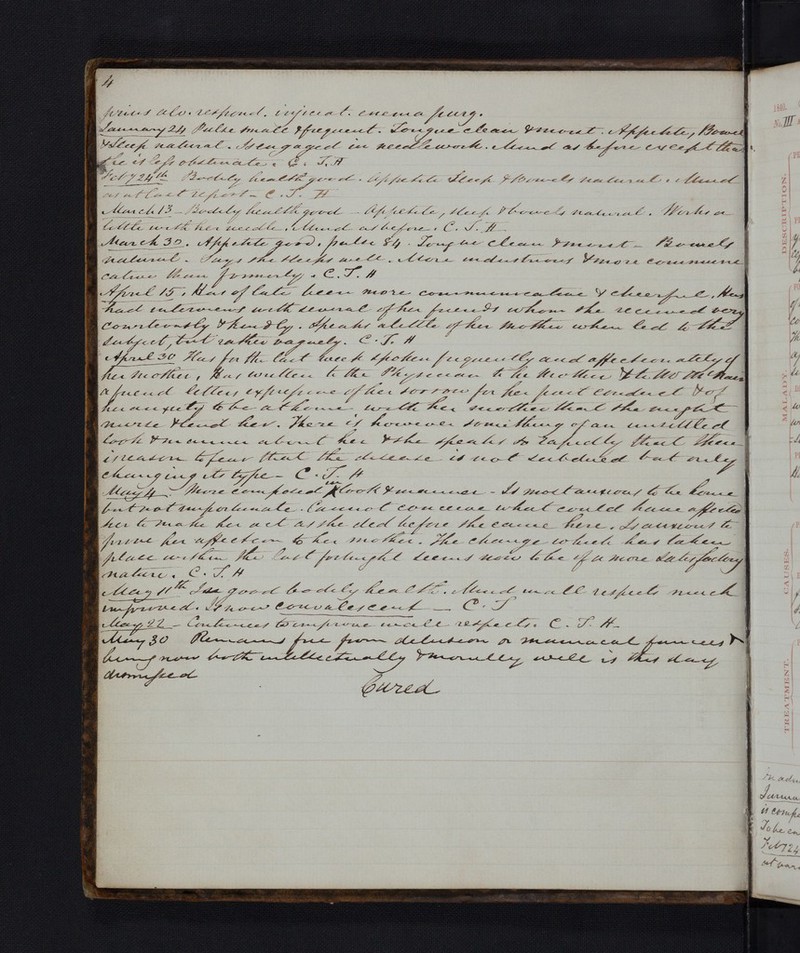 4
prius alv. respond. injiciat. enema purg.
January 24 Pulse small & frequent. Tongue clean & moist. Appetite, Bowel
& Sleep natural. Is engaged in needlework. Mind as before except that
she is less obstinate. C. T. H
Feby 24th Bodily health good. Appetite Sleep & Bowels natural. Mind
as at last report - C. T. H
March 13 - Bodily health good - Appetite, sleep & bowels natural. Works a
little with her needle. Mind as before. C. T. H
March 30. Appetite good, pulse 84. Tongue clean & moist - Bowels
natural. Says she sleeps well. More industrious & more communi
cative than formerly. C. T. H
April 15. Has of late been more communicative & cheerful. Has
had interviews with several of her friends whom she received very
courteously & kindly. Speaks a little of her Mother when led to the
subject, but rather vaguely. C. T. H
April 30 Has for the last week spoken frequently and affectionately of
her Mother, Has written to the Physician to her Mother & to
a friend letters expressive of her sorrow for her past conduct & of
her anxiety to be at home with her mother that she might
nurse & tend her. There is however something of an unsettled
look & manner about her & she speaks so rapidly that there
is reason to fear that the disease is not subdued but only
changing its type - C. T. H
May 4. More composed in look & manner - Is most anxious to be home
but not importunate. Cannot conceive what could have affected
her to make her act as she did before she came here. Is anxious to
prove her affection to her mother. The change which has taken
place within the last fortnight seems now to be of a more satisfactory
nature. C. T. H
May 11th In good bodily health. Mind in all respects much
improved. Is now convalescent - C. T
May 22 - Continues to improve in all respects. C. T. H
May 30 Remains free from delusion or maniacal fancies &
being now both intellectually & morally well is this day
dismissed
Cured
No. III
DESCRIPTION.
MALADY.
CAUSES.
TREATMENT.
Feby 24